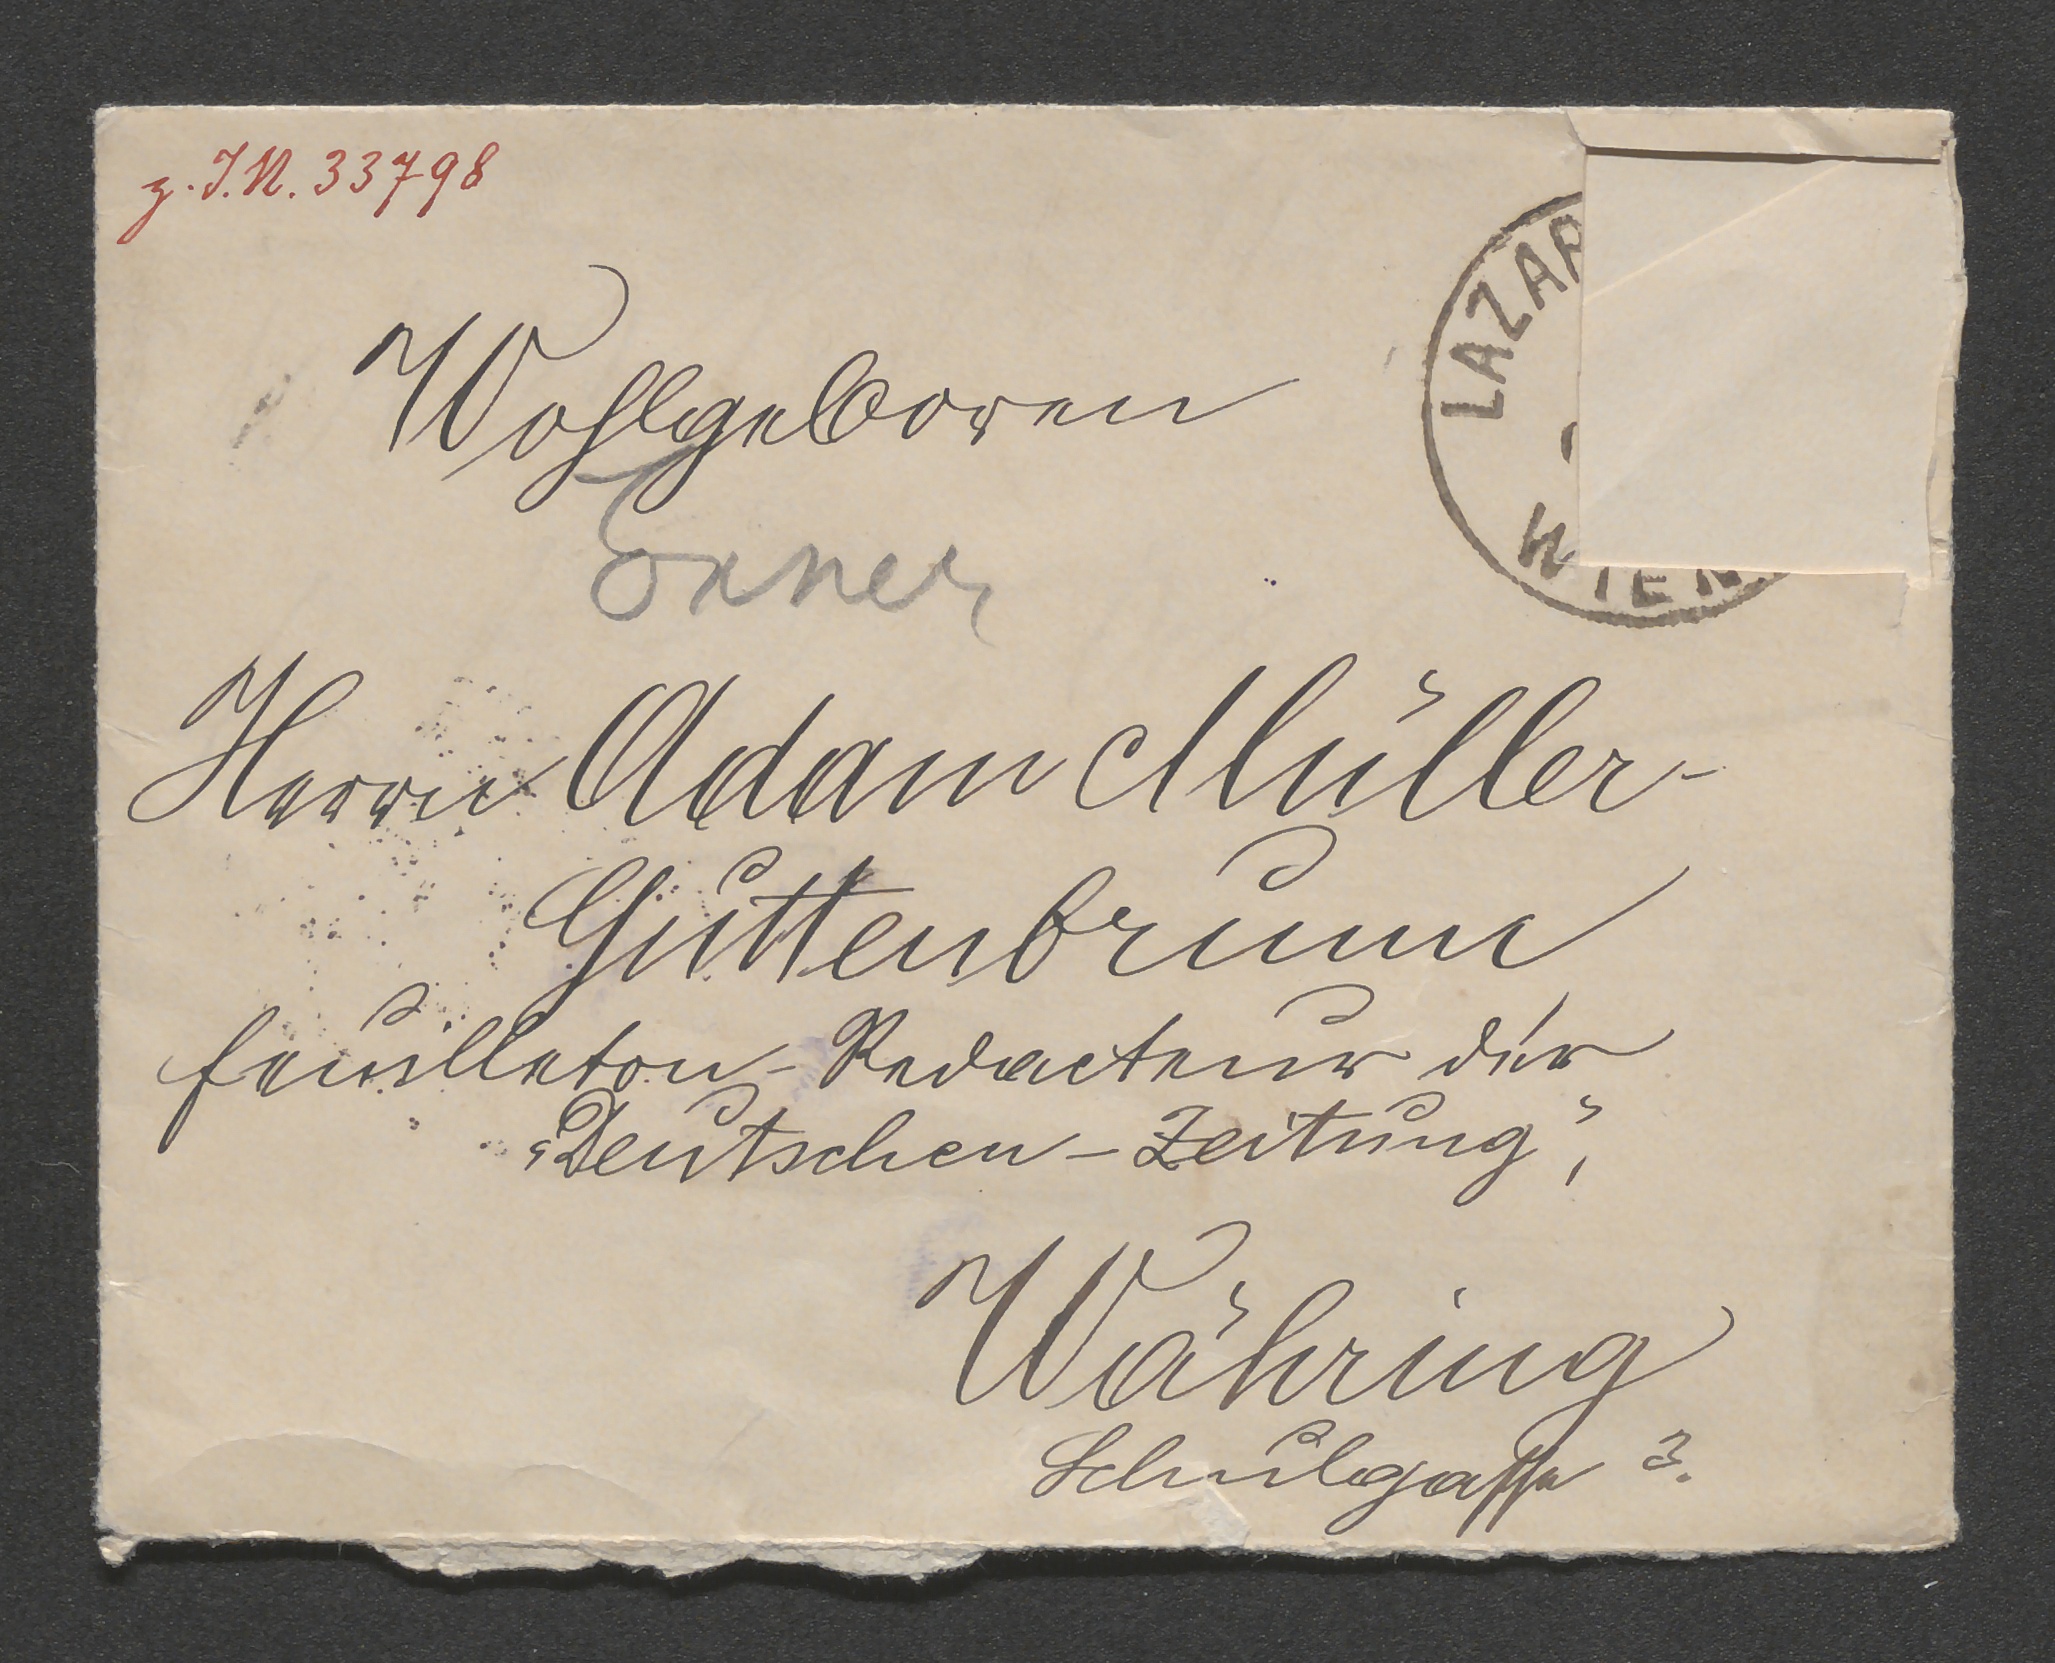 z. I.N. 33798
LAZAR
WIEN
Wohlgeboren
Exner
Herrn Adam Müller-
Guttenbrunn
Feuilleton-Redacteur der
„Deutschen-Zeitung",
Währing
Schulgasse 3.